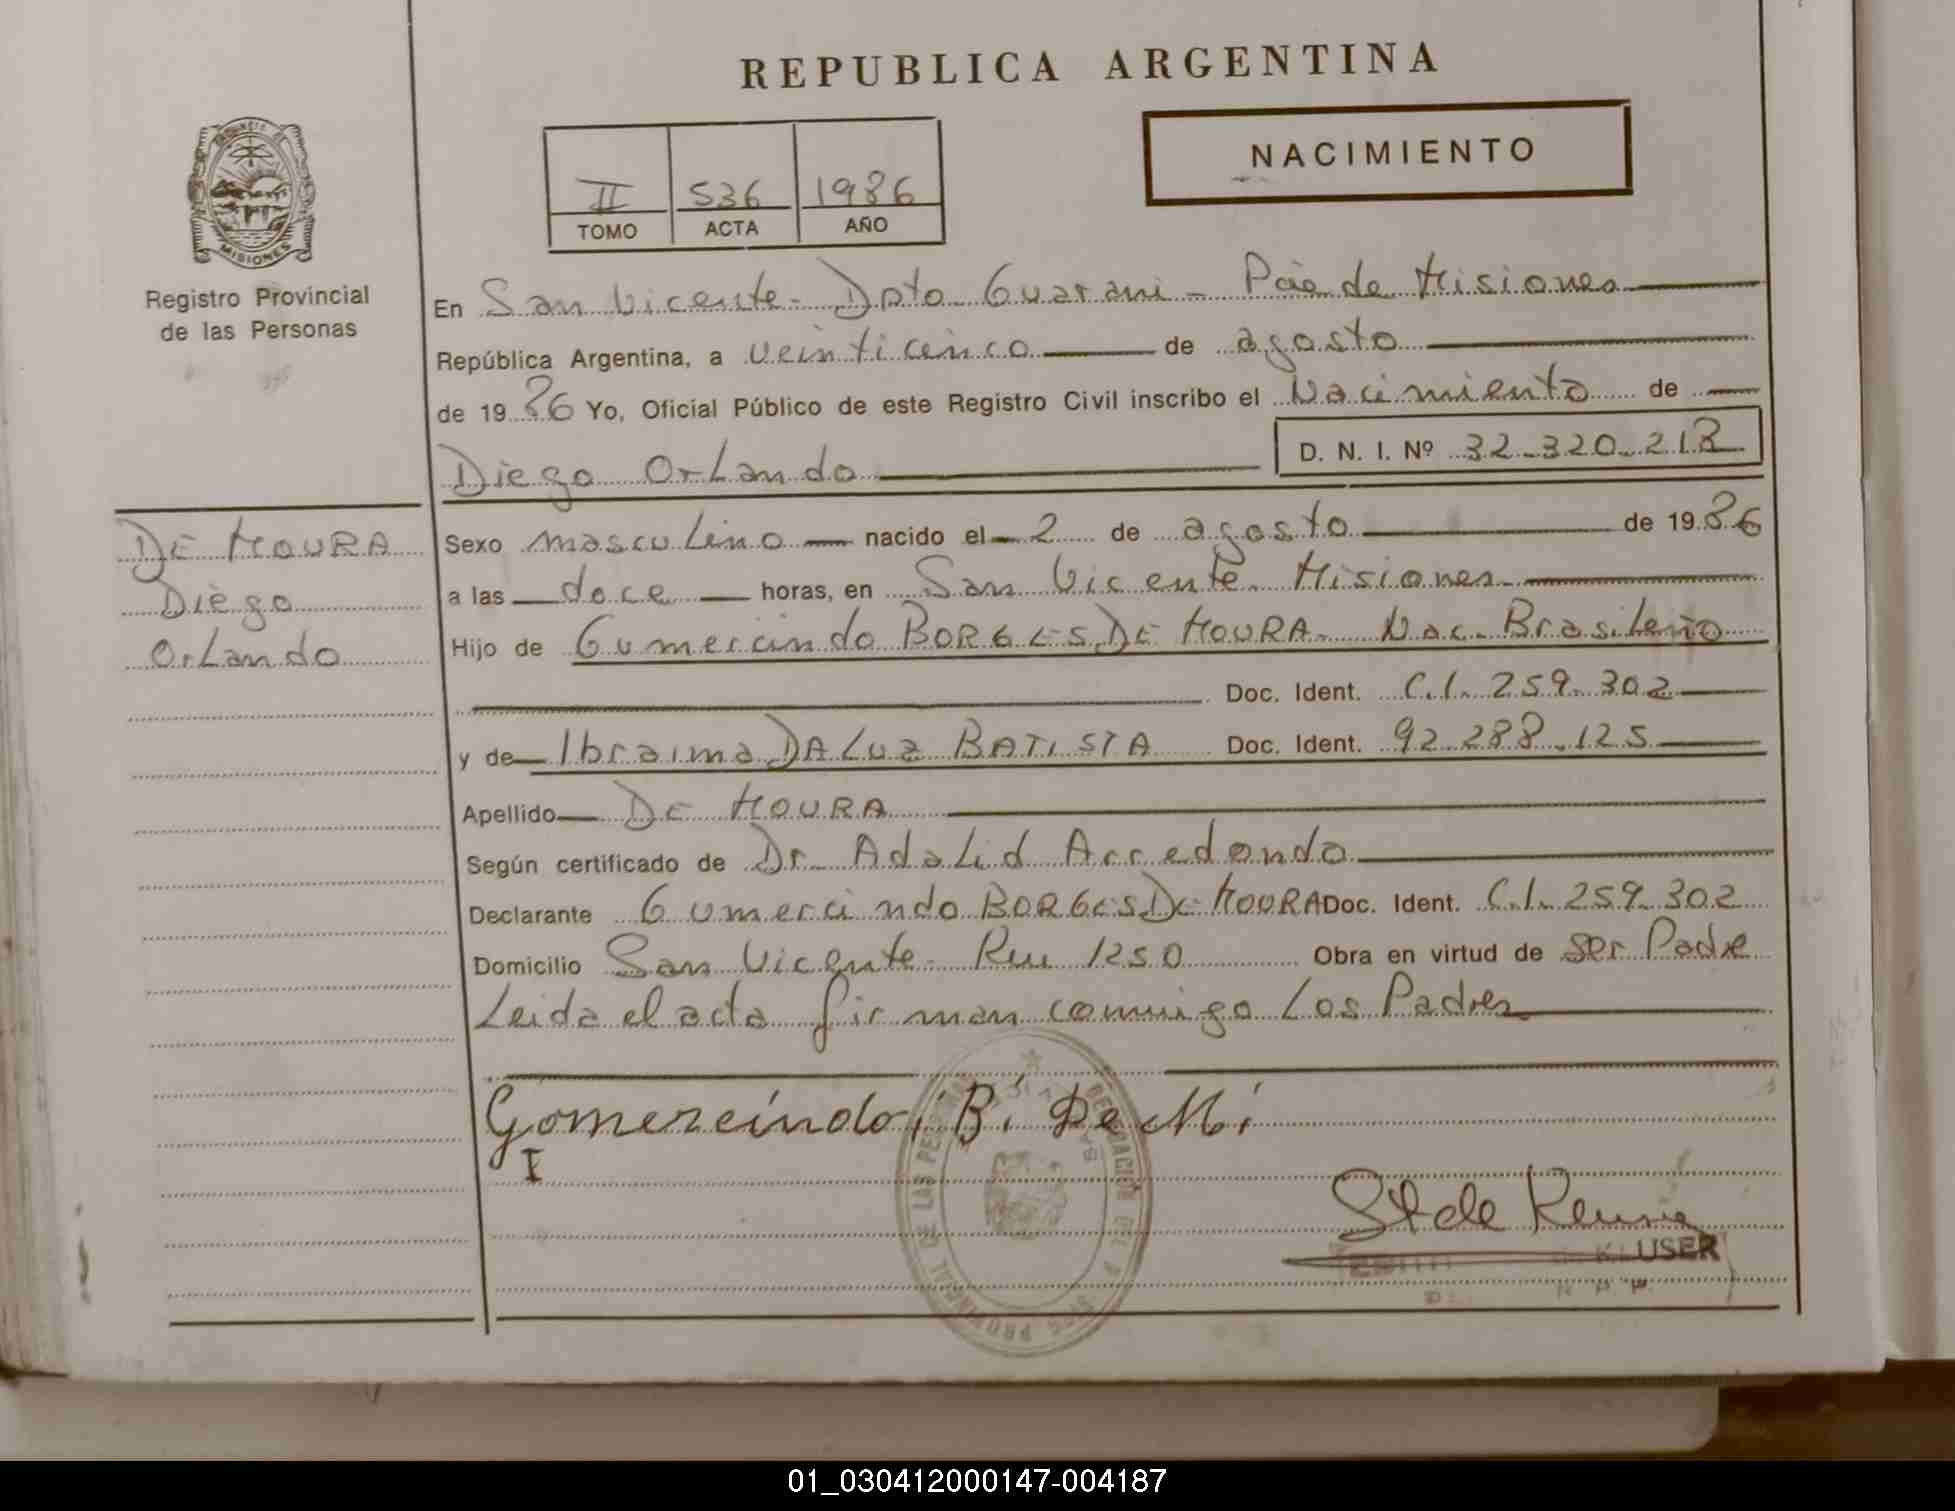 REPUBLICA ARGENTINA
NACIMIENTO
II 536 1986
TOMO ACTA AÑO
PROVINCIA DE
MISIONES
Registro Provincial
de las Personas
En San Vicente - Dpto Guarani - Pcia de Misiones
República Argentina, a veinticinco de agosto
de 1986 Yo, Oficial Público de este Registro Civil inscribo el Nacimiento de
Diego Orlando D. N. I. Nº 32.320.218
DE MOURA
Diego
Orlando
Sexo masculino nacido el 2 de agosto de 1986
a las doce horas, en San Vicente Misiones
Hijo de Gumercindo BORGES DE MOURA - Nac. Brasileño
Doc. Ident. C.I. 259.302
y de Ibraima DA LUZ BATISTA Doc. Ident. 92.288.125
Apellido DE MOURA
Según certificado de Dr. Adalid Arredondo
Declarante Gumercindo BORGES DE MOURA Doc. Ident. C.I. 259.302
Domicilio San Vicente - 1250 Obra en virtud de ser Padre
Leida el acta firman conmigo Los Padres
Gomereíndo B. De M.
KLUSER
01_030412000147-004187